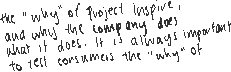 the "why" of Project Inspire,
and why the company does
what it does. It is always important
to tell consumers the "why" of